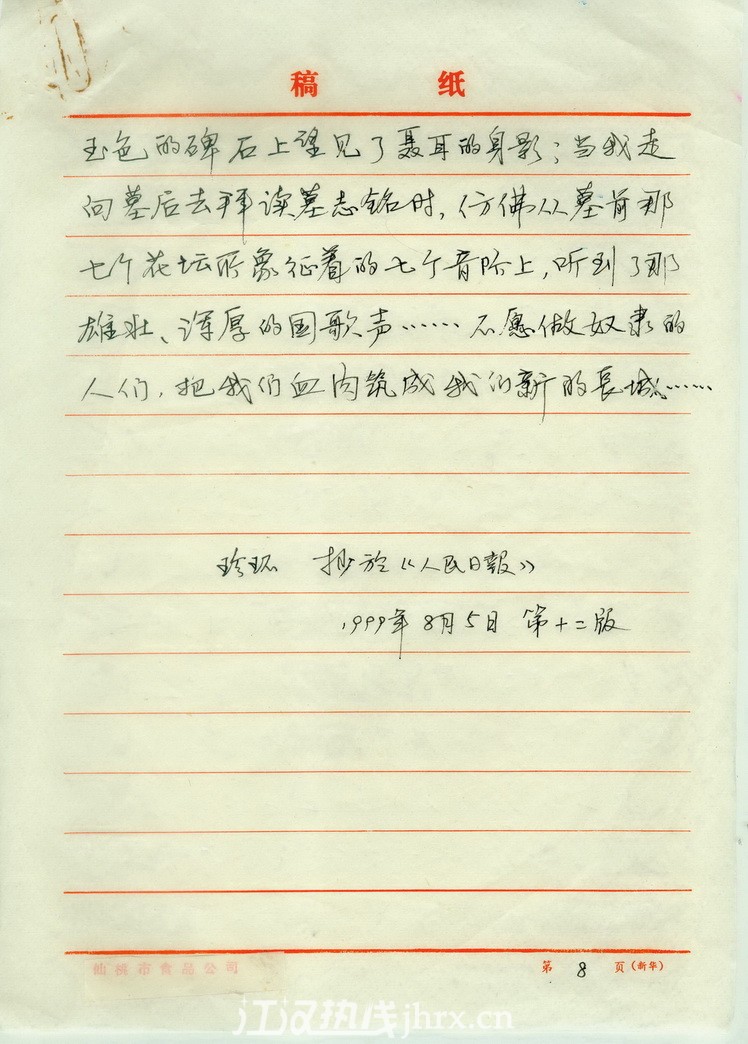 稿 纸
玉色的碑石上望见了聂耳的身影；当我走
向墓后去拜读墓志铭时，仿佛从墓前那
七个花坛所象征着的七个音阶上，听到了那
雄壮、浑厚的国歌声……不愿做奴隶的
人们，把我们血肉筑成我们新的長城……
珍环 抄于《人民日報》
1999年8月5日 第十二版
仙桃市食品公司
第 8 页（新华）
江汉热线jhrx.cn